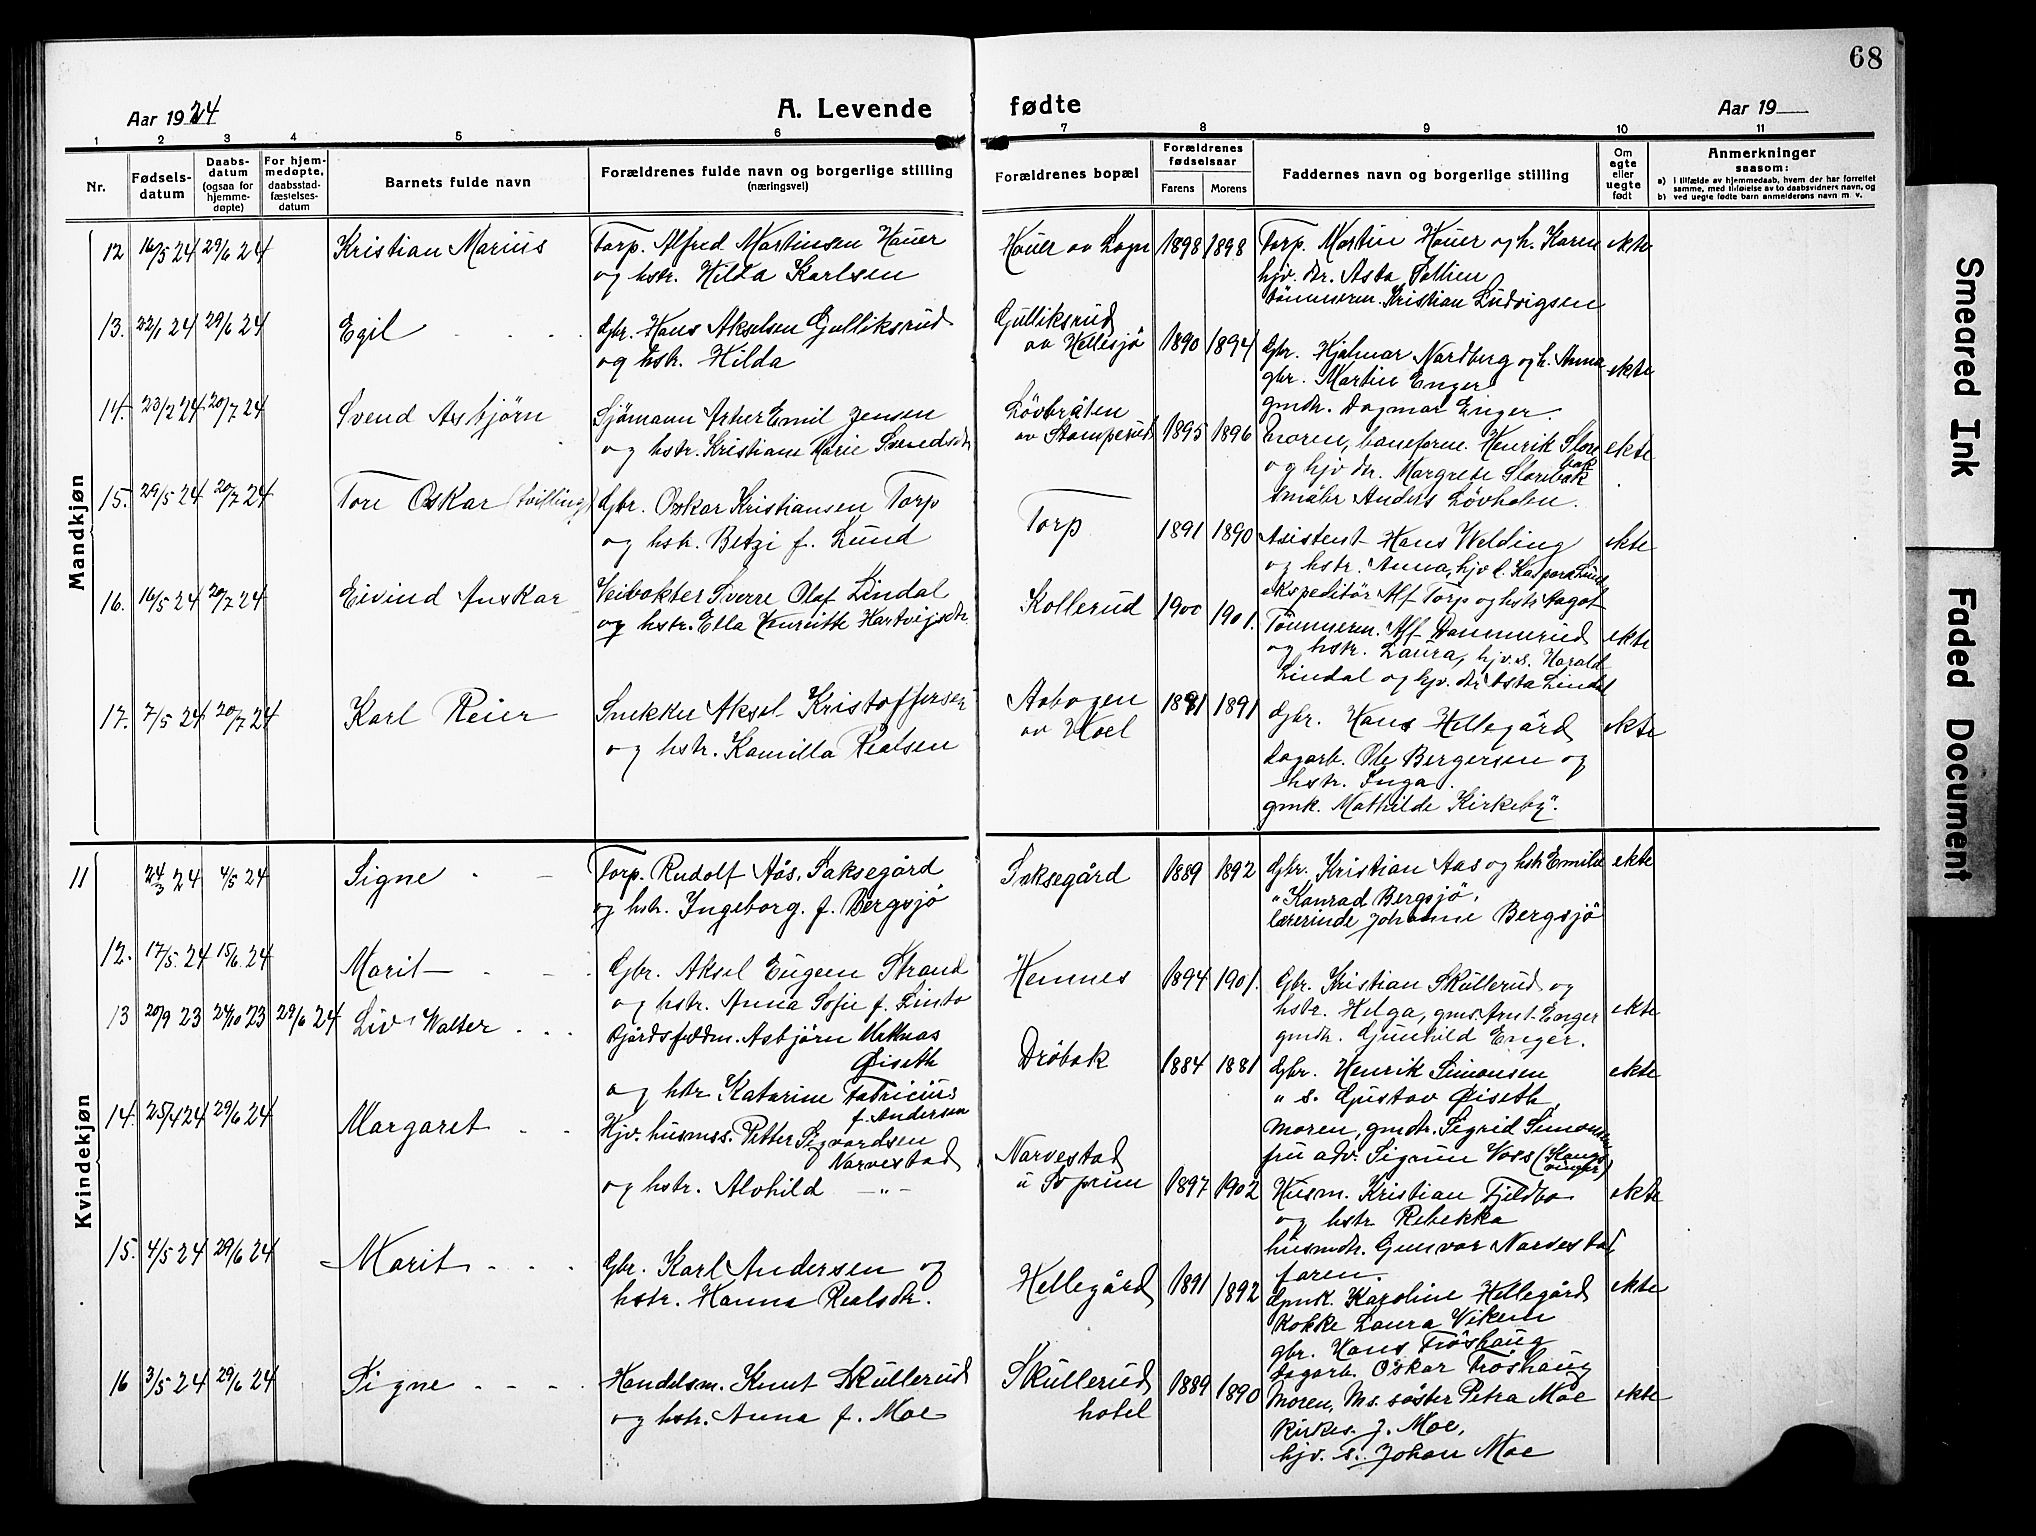 68
Aar 1924
A. Levende fødte
Aar 19
1 2 3 4 5 6 7 8 9 10 11
Nr.
Fødsels-
datum
Daabs-
datum
(ogsaa for
hjemme-
døpte)
For hjem-
medøpte,
daabsstad-
fæstelses-
datum
Barnets fulde navn
Forældrenes fulde navn og borgerlige stilling
(næringsvei)
Forældrenes bopæl
Forældrenes
fødselsaar
Farens Morens
Faddernes navn og borgerlige stilling
Om
egte
eller
uegte
født
Anmerkninger
saasom:
a) i tilfælde av hjemmedaab, hvem der har forrettet
samme, med tilføielse av to daabsvidners navn, og
b) ved uegte fødte barn anmelderens navn m. v.
Mandkjøn
12 16/5 24 29/6 24 Kristian Marius
Torp. Alfred Martinsen Hauer
og hstr. Hilda Karlsen
Hauer av Sogn 1898 1898
Torp. Martin Hauer og h. Karen
hjv. dr. Asta
tömmerm. Kristian Ludvigsen
ekte
13. 22/1 24 29/6 24 Egil
Gbr. Hans Akselsen Gulliksrud
og hstr. Hilda
Gulliksrud
av Hellesjö 1890 1894
Gbr. Hjalmar Nordberg og h. Anna
gbr. Martin Enger
gmdr. Dagmar Enger.
ekte
14. 23/2 24 20/7 24 Svend Asbjörn
Sjömann Artur Emil Jensen
og hstr. Kristiane Marie Svendsdr
Lövbråten
av Stomperud 1895 1896
moren, baneform. Henrik Slore
bak
og hjv dr. Margrete Slorebak
småbr Anders Lövholen.
ekte
15. 29/5 24 20/7 24 Tore Oskar (tvilling)
Gbr. Oskar Kristiansen Torp
og hstr. Betzi f. Lund
Torp 1891 1890
Assistent Hans Welding
og hstr. Anna, hjv l. Kaspara Lund
ekspeditör Alf Torp og hstr Aagot
ekte
16. 16/5 24 20/7 24 Eivind Anskar
Veivokter Sverre Olaf Lindal
og hstr. Ella Henriette Hartvigsdr.
Kollerud 1900 1901.
Tömmerm. Alf Dammerud
og hstr. Laura, hjv. s. Harald
Lindal og hjv. dr Asta Lindal
ekte
17. 7/5 24 20/7 24 Karl Reier
Snekker Aksel Kristoffersen
og hstr. Kamilla Realsen
Aabogen
av Hoel 1891 1891
Gbr. Hans Hellegård
Dagarb. Ole Bergersen og
hstr. Inga.
gmk. Mathilde Kirkeby.
ekte
Kvindekjøn
11 24/3 24 4/5 24 Signe
Torp. Rudolf Aås, Saksegård
og hstr. Ingeborg. f. Bergsjö
Saksegård 1889 1892
Gbr. Kristian Aas og hstr Emilie
" Konrad Bergsjö,
lærerinde Johanne Bergsjö
ekte
12. 17/5 24 15/6 24 Marit
Gbr. Aksel Eugen Strand
og hstr. Anna Sofie f. Finto
Hemnes 1894 1901.
Gbr. Kristian Skullerud og
hstr. Helga, gms. Arnt Enger
gmdr. Gunhild Enger.
ekte
13 20/9 23 24/10 23 29/6 24 Liv Walter
Asbjörn
Øiseth
og hstr Katarine Fabricius
f. Andersen
Dröbak 1884 1881
Gbr. Henrik Simonsen
" s. Gustav Øiseth,
moren, gmdr. Sigrid Simonsen
fru adv. Sigrun Voss (Kongs
vinger)
ekte
14. 25/4 24 29/6 24 Margaret
Hjv. husms. Petter Sigvardsen
Narvestad
og hstr. Alvhild — " —
Narvestad
u Soprum 1897 1902
Husm. Kristian Fjeldbo
og hstr Rebekka
husmdr. Gunvor Narvestad
faren.
ekte
15. 4/5 24 29/6 24 Marit
Gbr. Karl Andersen og
hstr. Hanna Realsdr.
Hellegård 1891 1892
Gmk. Karoline Hellegård
Kokke Laura Viken
gbr. Hans Tröshaug
Dagarb. Oskar Tröshaug
ekte
16 3/5 24 29/6 24 Signe
Handelsm. Knut Skullerud
og hstr. Anna f. Moe
Skullerud
hotel 1889 1890
Moren, Ms. söster Petra Moe
kirkes. J. Moe,
hjv. s. Johan Moe
ekte
Smeared Ink
Faded Document